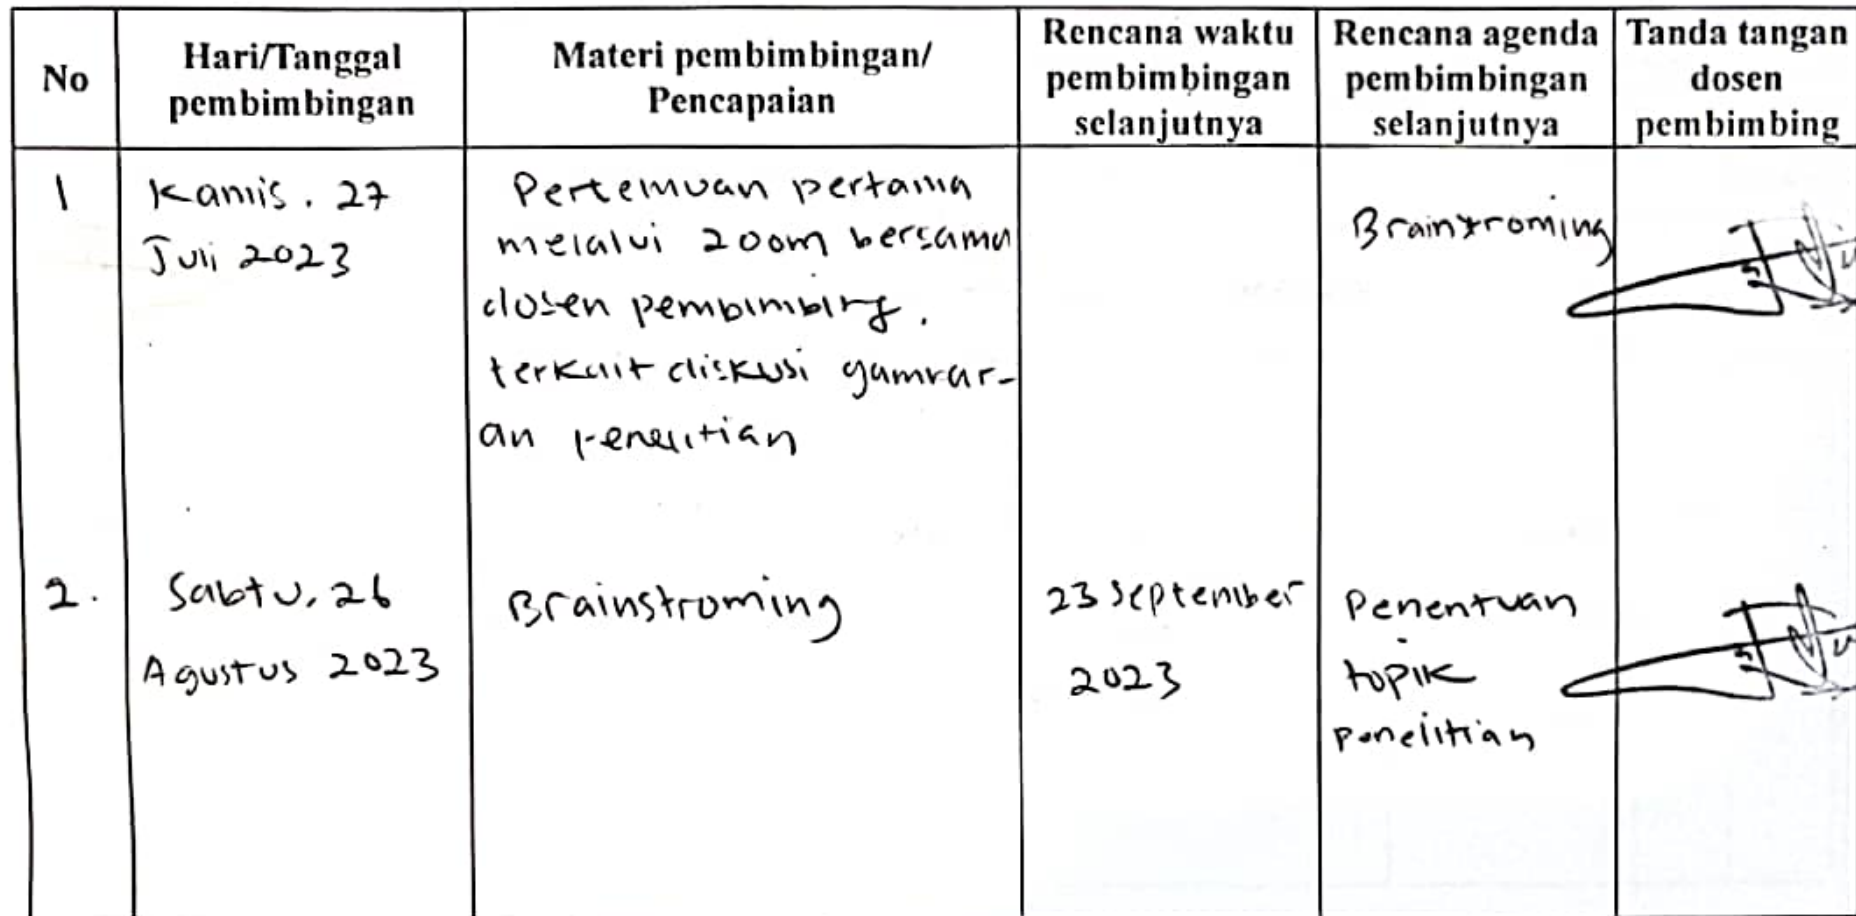 No
Hari/Tanggal
pembimbingan
Materi pembimbingan/
Pencapaian
Rencana waktu
pembimbingan
selanjutnya
Rencana agenda
pembimbingan
selanjutnya
Tanda tangan
dosen
pembimbing
1
Kamis. 27
Juli 2023
Pertemuan pertama
melalui zoom bersama
dosen pembimbing.
terkait diskusi gambar-
an penelitian
Brainstroming
2.
Sabtu, 26
Agustus 2023
Brainstroming
23 September
2023
Penentuan
topik
penelitian